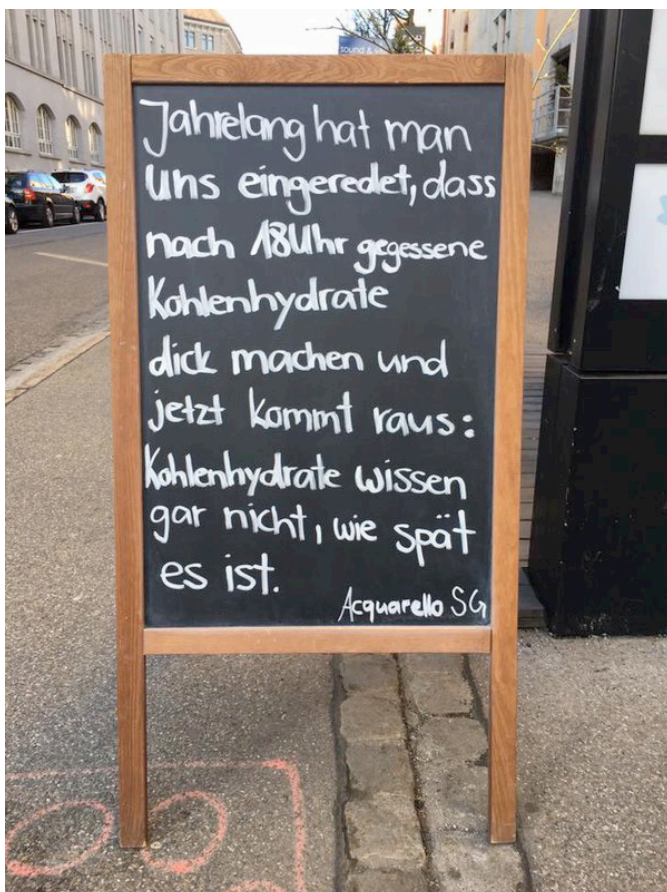 sound &
Jahrelang hat man
Uns eingeredet, dass
nach 18Uhr gegessene
Kohlenhydrate
dick machen und
jetzt kommt raus:
Kohlenhydrate wissen
gar nicht, wie spät
es ist.
Acquarello SG